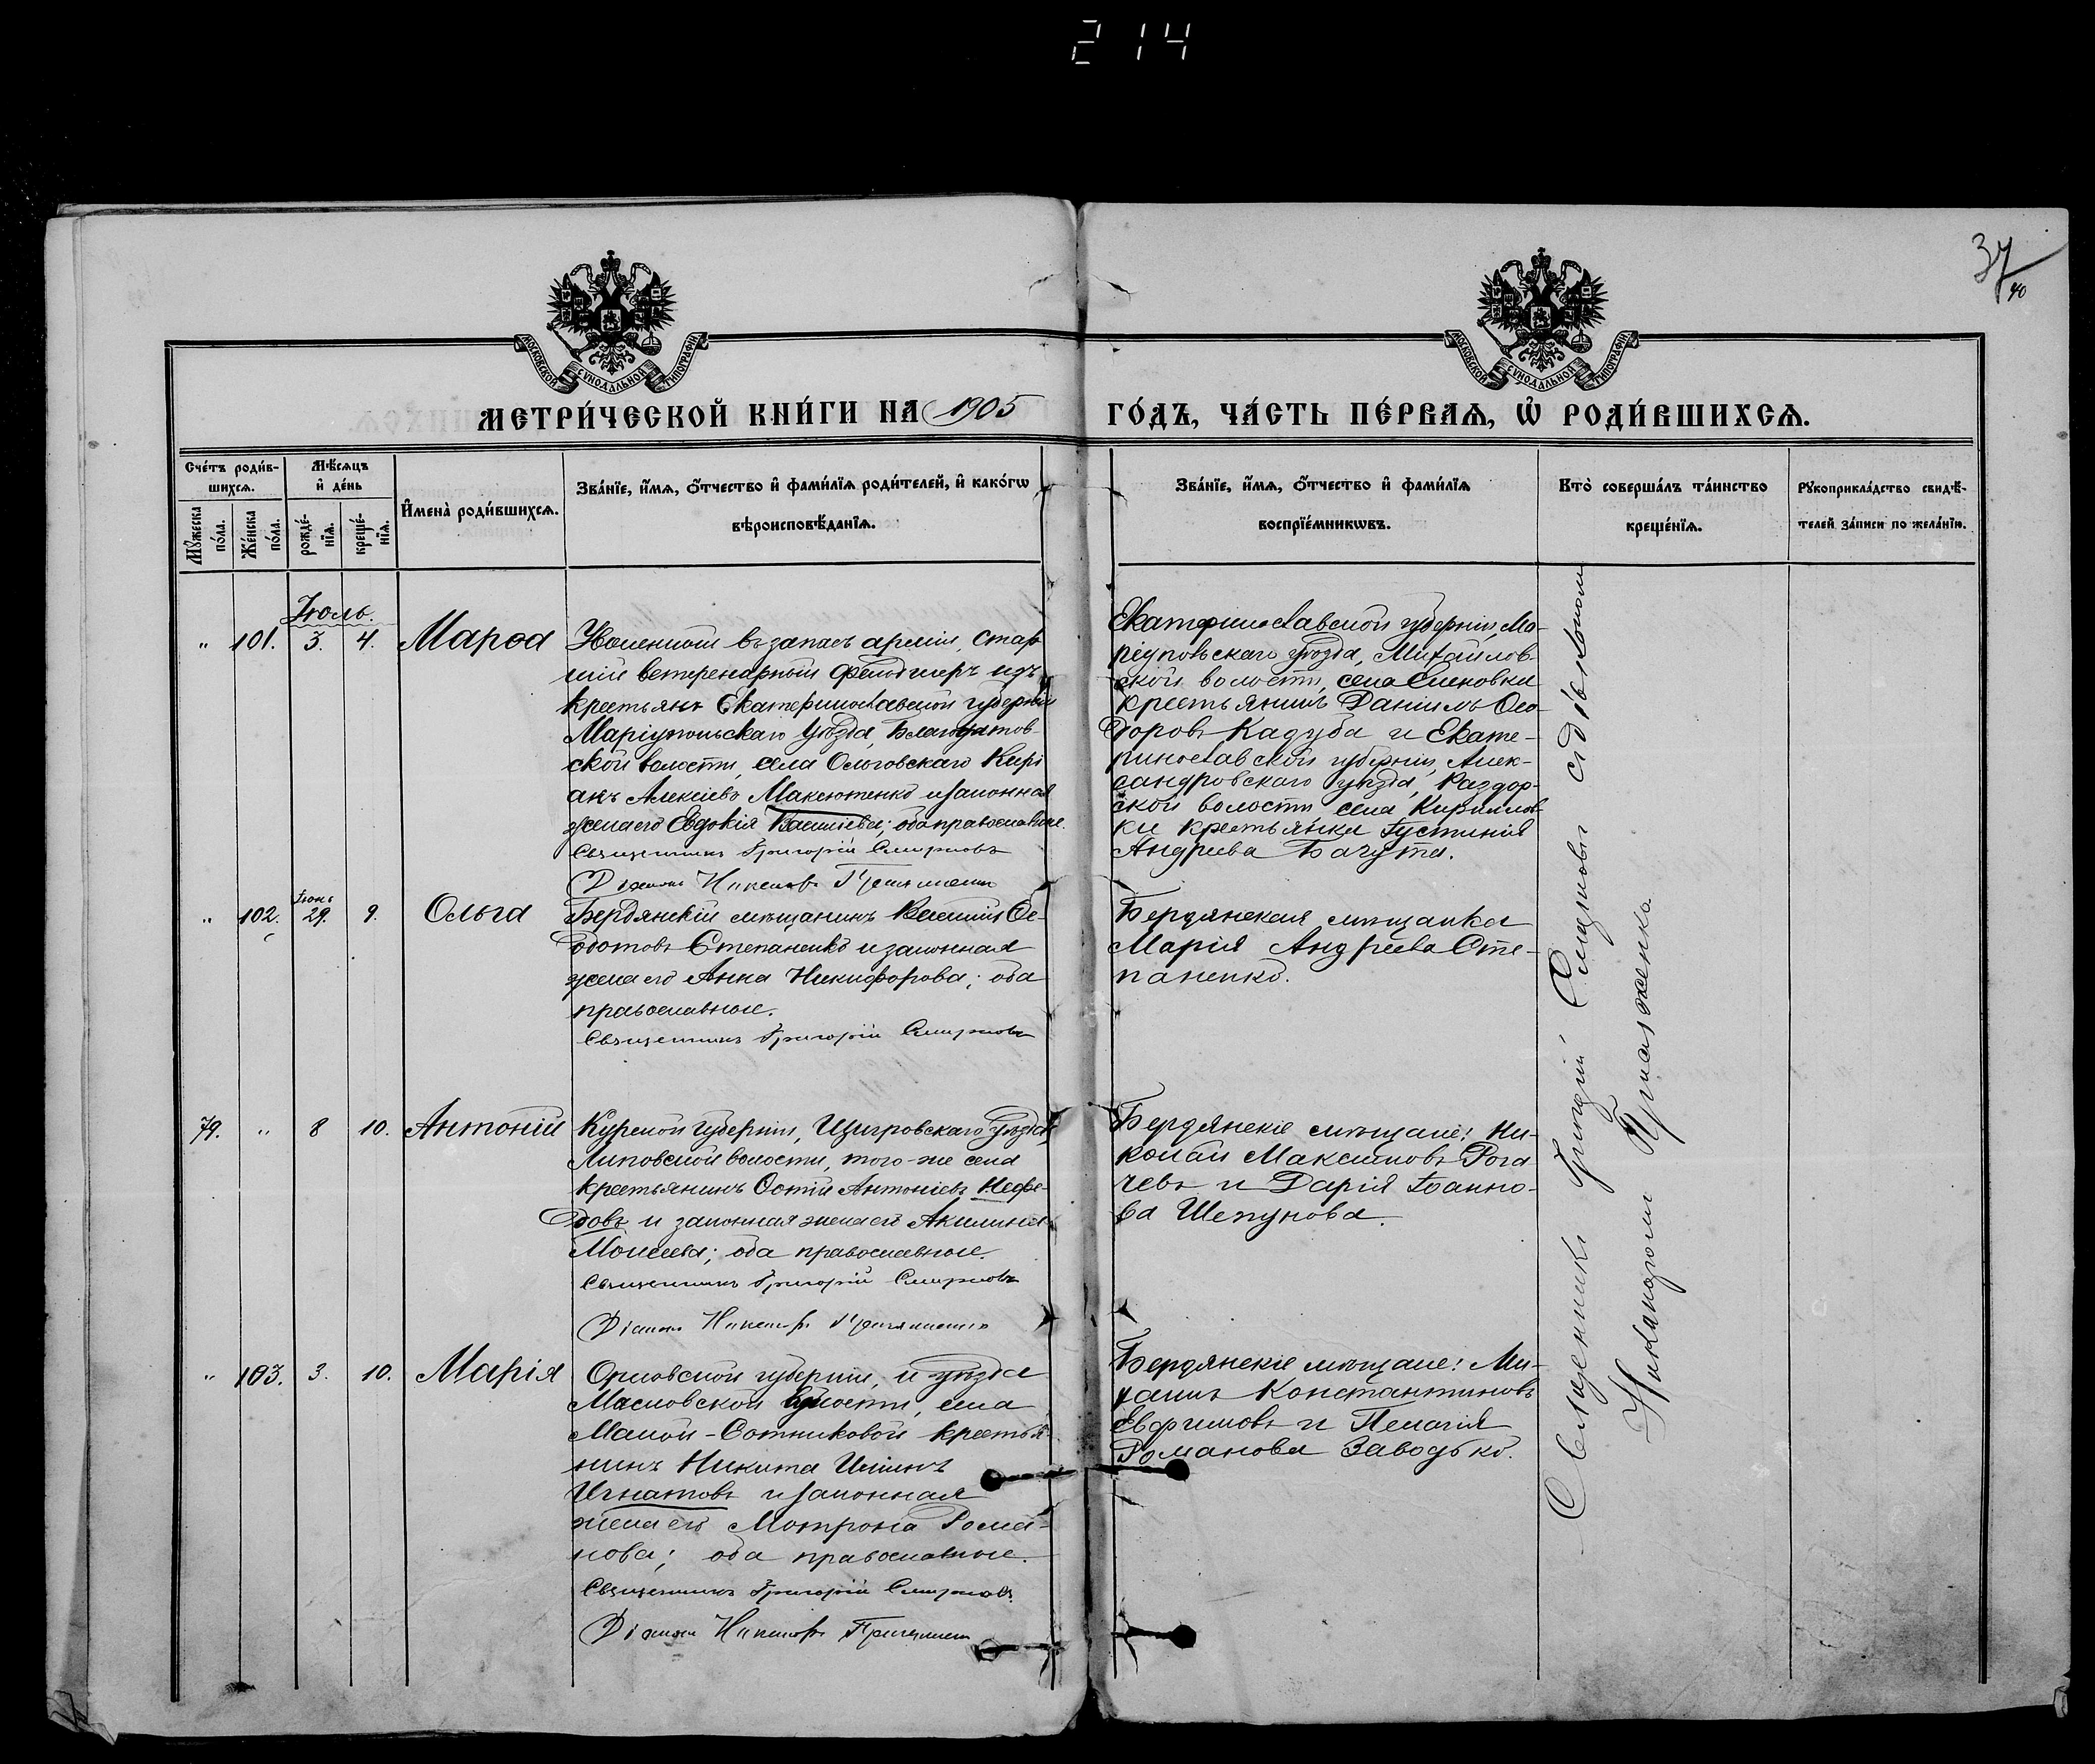 214
37
40
МОСКОВСКОЙ СѴНОДАЛЬНОЙ ТИПОГРАФІИ
МОСКОВСКОЙ СѴНОДАЛЬНОЙ ТИПОГРАФІИ
МЕТРИ́ЧЕСКОЙ КНИ́ГИ НА 1905 ГО́ДЪ, ЧА́СТЬ ПЕ́РВАѦ, Ѡ҆ РОДИ́ВШИХСѦ.
Сче́тъ роди́в-
шихсѧ.
Мꙋ́жеска по́ла.
Же́нска по́ла.
Мѣ́сѧцъ
и҆ де́нь
рожде́-
нїѧ.
креще́-
нїѧ.
И҆мена̀ роди́вшихсѧ.
Зва́нїе, и҆́мѧ, ѻ҆́тчество и҆ фами́лїѧ роди́телей, и҆ како́гѡ
вѣроисповѣ́данїѧ.
Зва́нїе, и҆́мѧ, ѻ҆́тчество и҆ фами́лїѧ
воспрїе́мникѡвъ.
Кто̀ соверша́лъ та́инство
креще́нїѧ.
Рꙋкоприкла́дство свидѣ́-
телей за́писи по жела́нїю.
Іюль.
" 101. 3. 4. Марѳа
Уволенный въ запасъ арміи, стар
шій ветеренарный фельдшеръ изъ
крестьянъ Екатеринославской губерніи
Маріупольскаго уѣзда, Благодатов-
ской волости, села Ольговскаго Кирі
анъ Алексіевъ Максютенко и законная
жена его Евдокія Василіева; оба православные.
Священникъ Григорій Смирновъ
Діаконъ
Екатеринославской губерніи, Ма-
ріупольскаго уѣзда, Михайлов-
ской волости, села Еленовки
крестьянинъ Даніилъ Ѳео-
доровъ Кадуба и Екате-
ринославской губерніи, Алек-
сандровскаго уѣзда, Раздор-
ской волости села Кириллов-
ки крестьянка Іустинія
Андреева Бачута.
" 102. Іюнь 29. 9. Ольга
Бердянскій мѣщанинъ Василій Ѳе-
одотовъ Степаненко и законная
жена его Анна Никифорова; оба
православные.
Священникъ Григорій Смирновъ
Бердянская мѣщанка
Марія Андреева Сте-
паненко.
79. " 8 10. Антоній
Курской губерніи, Щигровскаго уѣзда,
Липовской волости, того-же села
крестьянинъ Фотій Антоніевъ Нефе-
довъ и законная жена его Акилина
Моисеева; оба православные.
Священникъ Григорій Смирновъ
Діаконъ
Бердянскіе мѣщане: Ни-
колай Максимовъ Рога
чевъ и Дарія Іоанно-
ва Шепунова.
" 103. 3. 10. Марія
Орловской губерніи, и уѣзда
Масловской волости, села
Малой-Сотниковой крестья-
нинъ Никита Иліинъ
Игнатовъ и законная
жена его Мотрона Рома-
нова; оба православные.
Священникъ Григорій Смирновъ
Діаконъ
Бердянскіе мѣщане: Ми-
хаилъ Константиновъ
Евфимовъ и Пелагія
Романова Заводько.
Священникъ Григорій Смирновъ съ діакономъ
Никандромъ